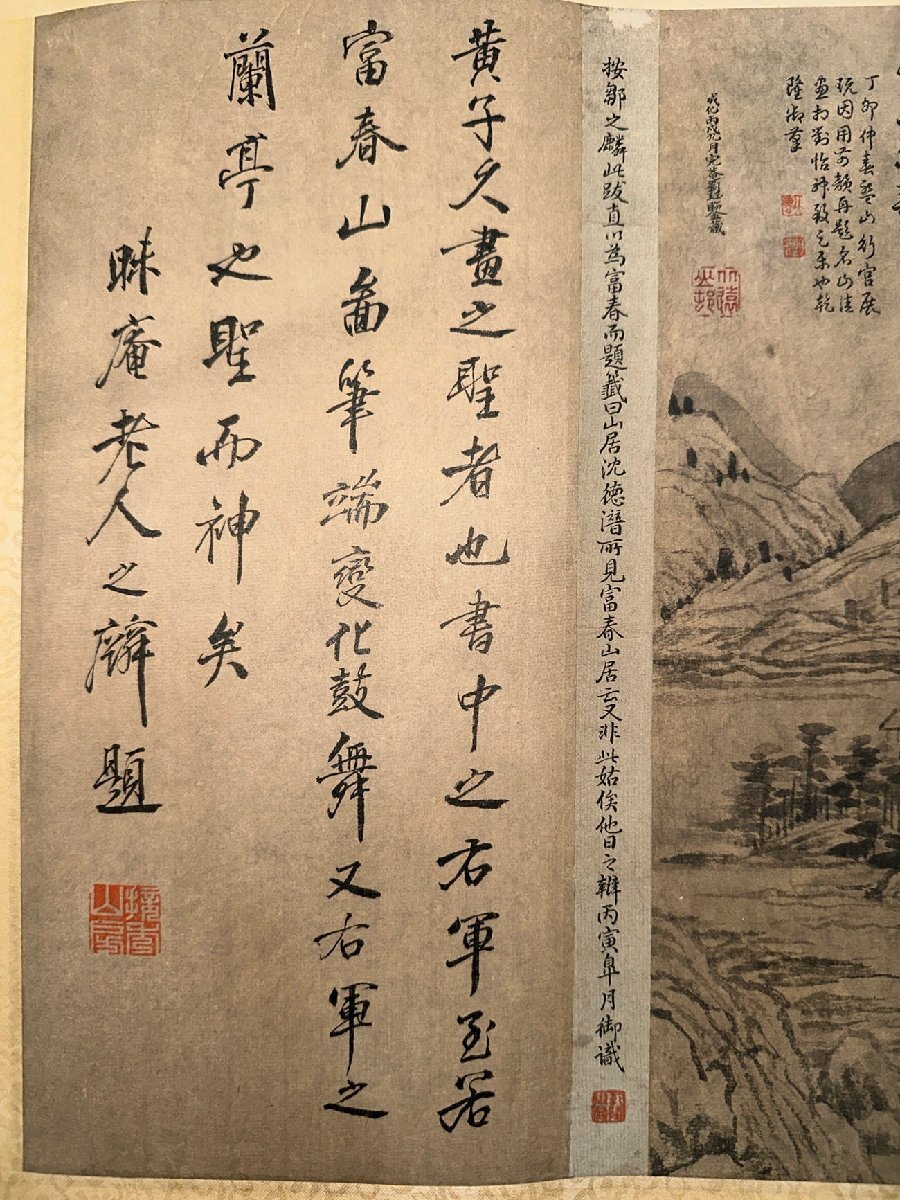 丁卯仲春盤山行宮展
玩因用前韻再題名山佳
畫相對怡神致足樂也乾
隆御筆
按鄒之麟此跋直以為富春而題籤曰山居沈德潛所見富春山居云又非此姑俟他日之辨丙寅皐月御識
黃子久畫之聖者也書中之右軍至若
富春山圖筆端變化鼓舞又右軍之
蘭亭也聖而神矣
昧庵老人之麟題